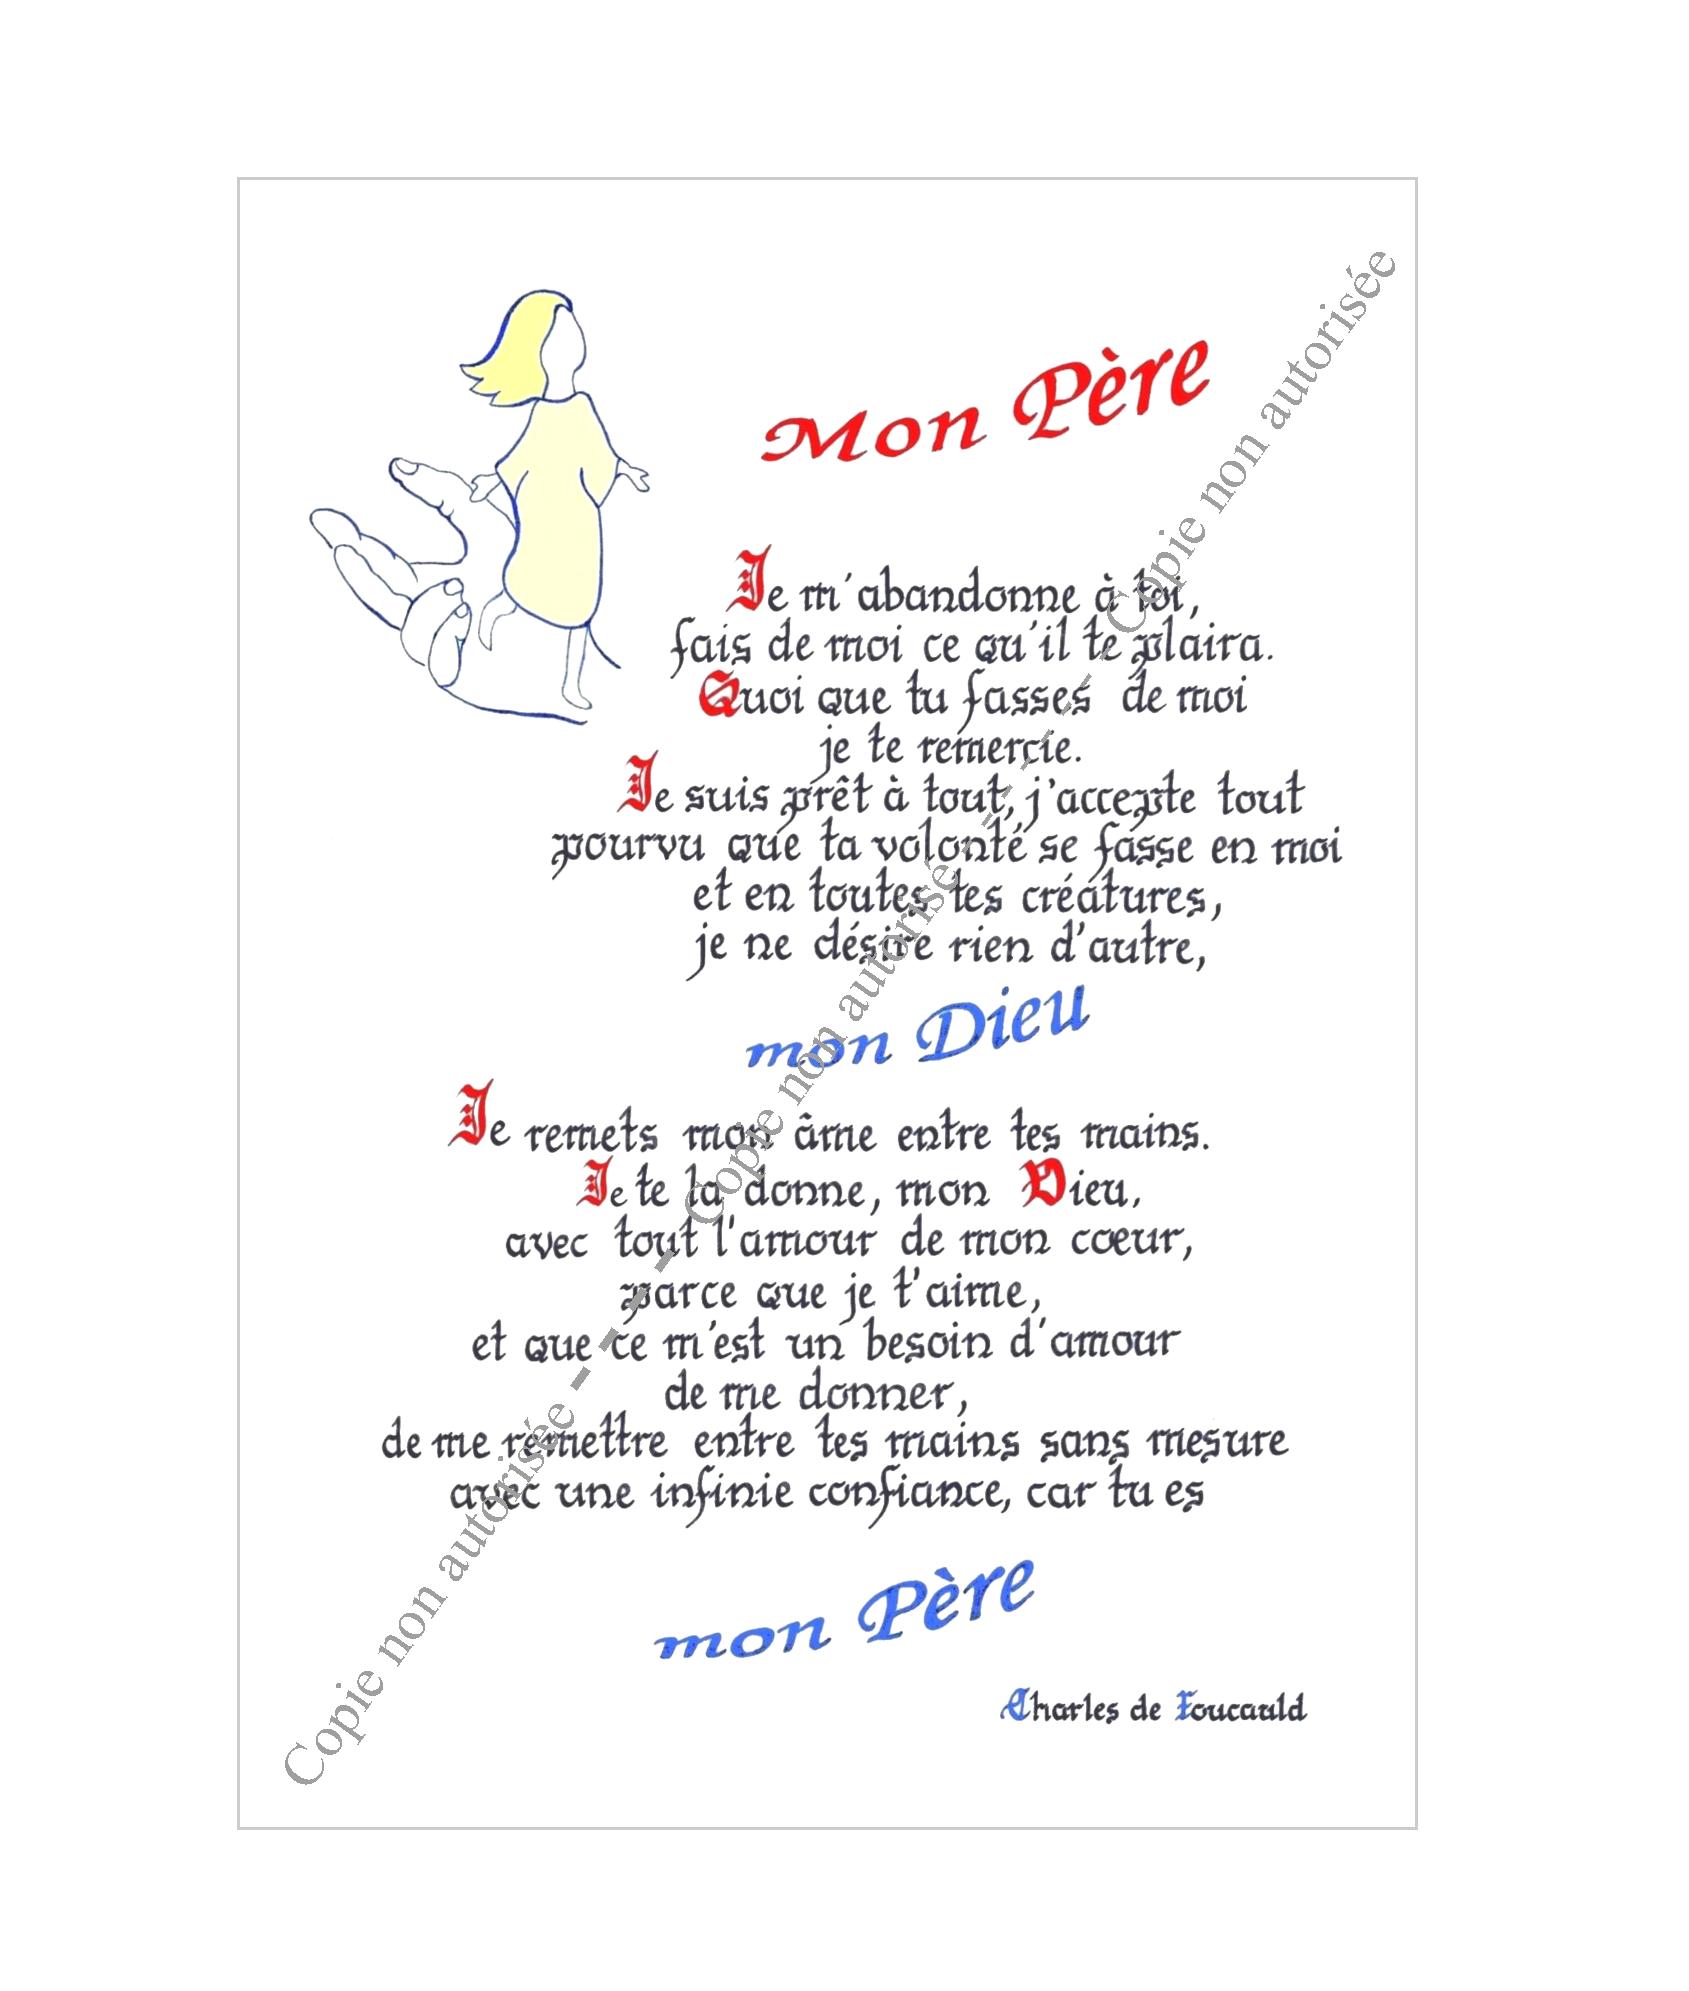 Mon Père
Je m'abandonne à toi,
fais de moi ce qu'il te plaira.
Quoi que tu fasses de moi
je te remercie.
Je suis prêt à tout, j'accepte tout
pourvu que ta volonté se fasse en moi
et en toutes tes créatures,
je ne désire rien d'autre,
mon Dieu
Je remets mon âme entre tes mains.
Je te la donne, mon Dieu,
avec tout l'amour de mon cœur,
parce que je t'aime,
et que ce m'est un besoin d'amour
de me donner,
de me remettre entre tes mains sans mesure
avec une infinie confiance, car tu es
mon Père
Charles de Foucauld
Copie non autorisée - - - - Copie non autorisée - - - - Copie non autorisée